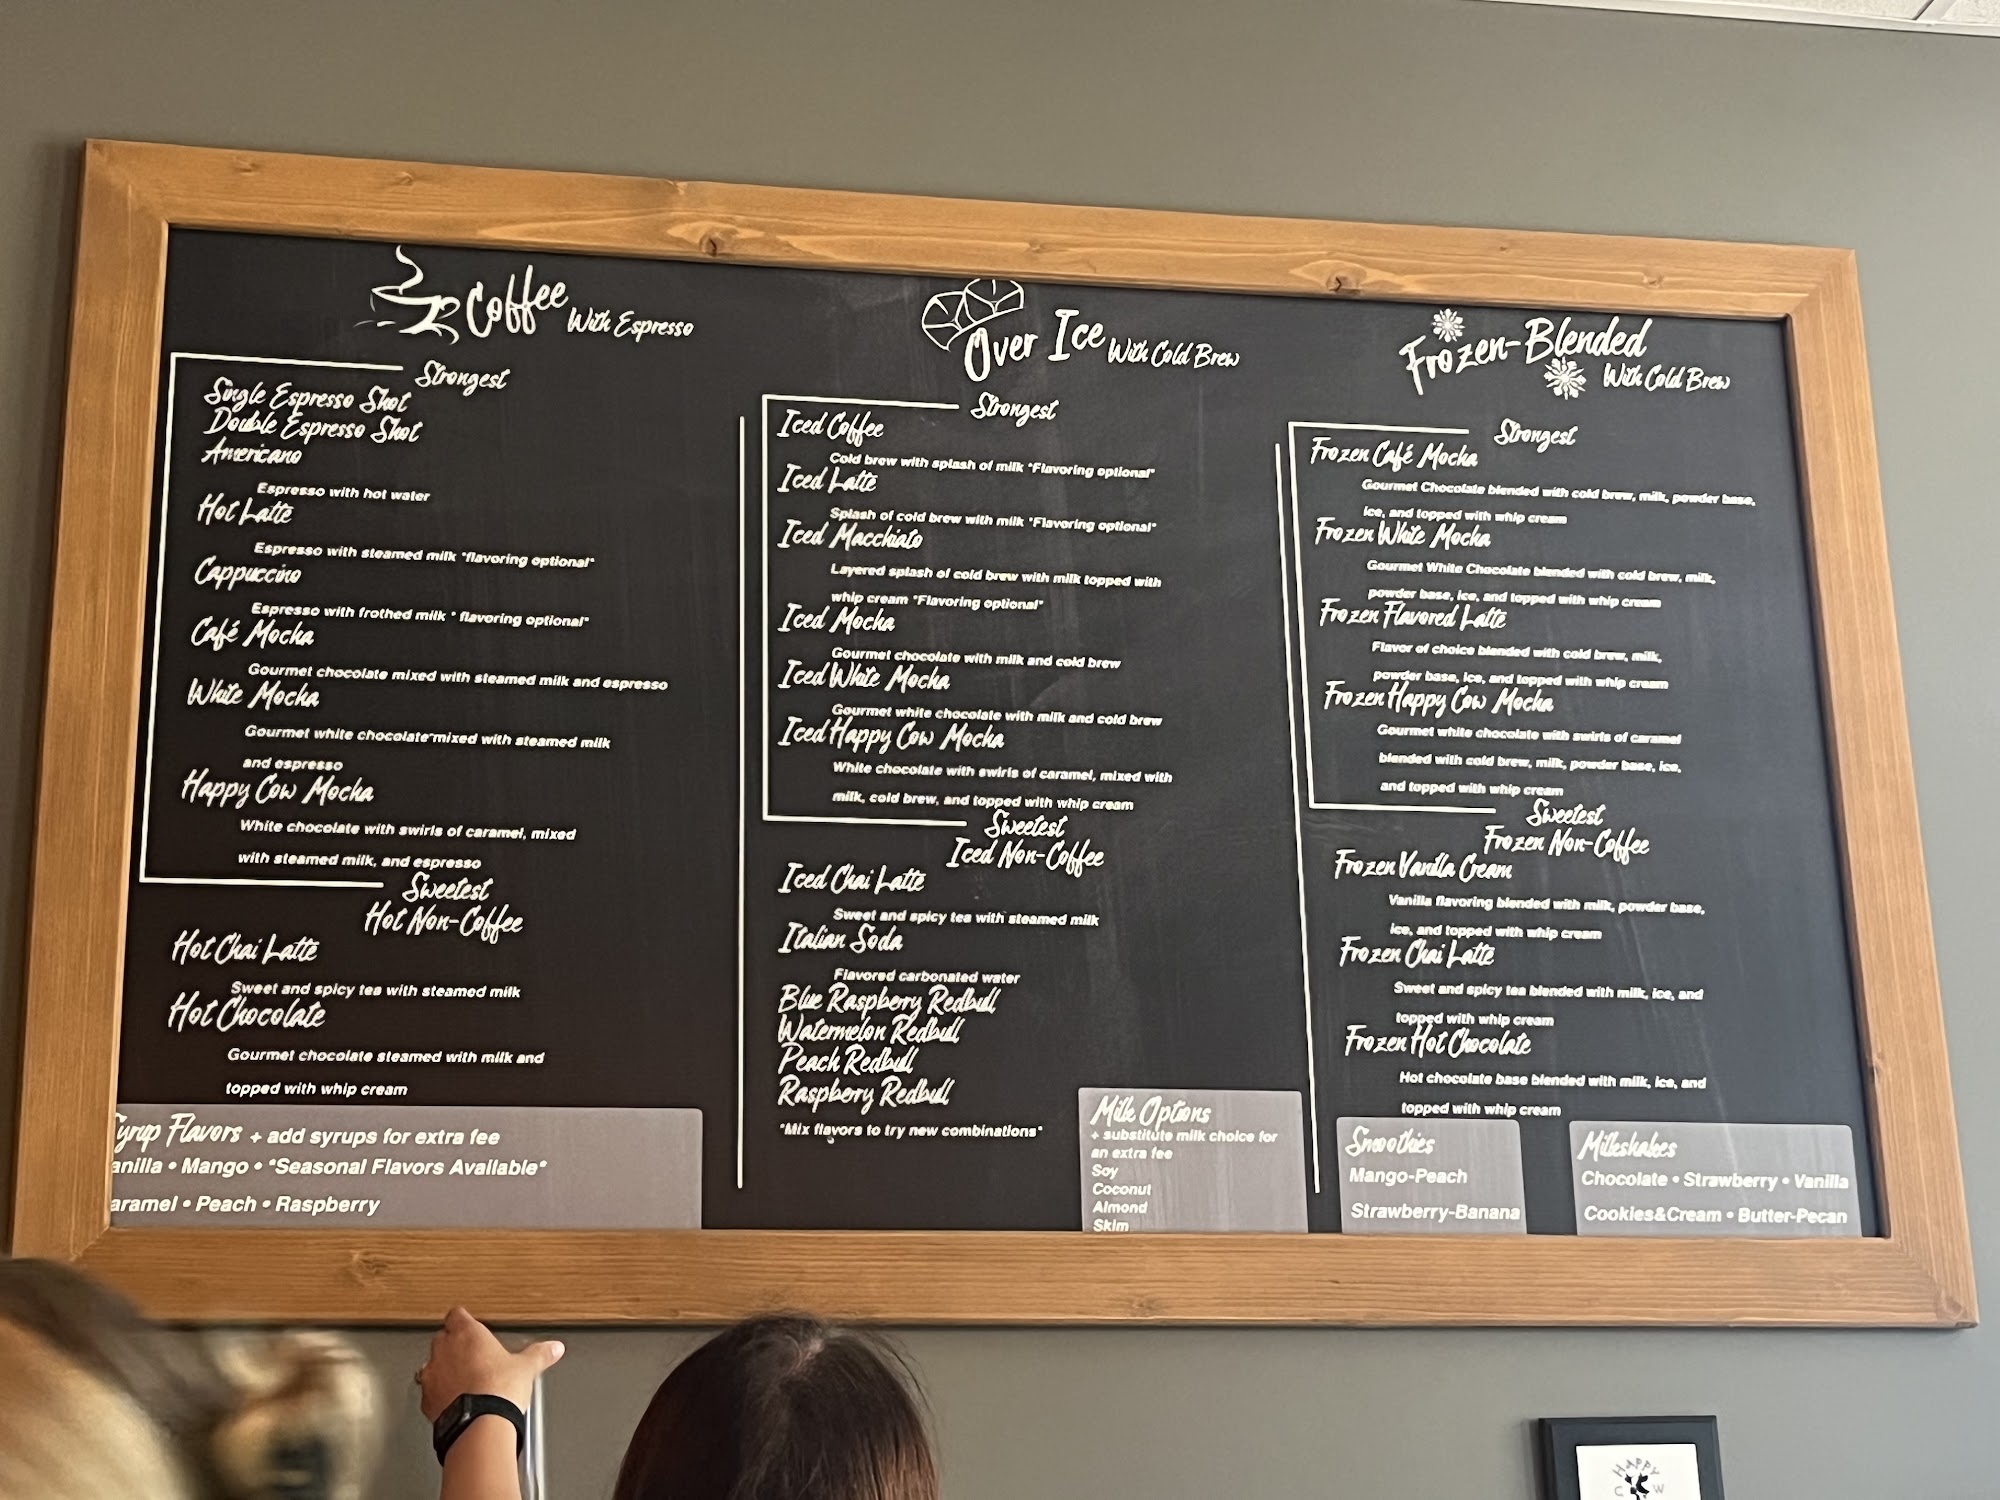 Coffee With Espresso
Strongest
Single Espresso Shot
Double Espresso Shot
Americano
Espresso with hot water
Hot Latte
Espresso with steamed milk "flavoring optional"
Cappuccino
Espresso with frothed milk " flavoring optional"
Café Mocha
Gourmet chocolate mixed with steamed milk and espresso
White Mocha
Gourmet white chocolate mixed with steamed milk
and espresso
Happy Cow Mocha
White chocolate with swirls of caramel, mixed
with steamed milk, and espresso
Sweetest
Hot Non-Coffee
Hot Chai Latte
Sweet and spicy tea with steamed milk
Hot Chocolate
Gourmet chocolate steamed with milk and
topped with whip cream
Syrup Flavors + add syrups for extra fee
anilla • Mango • *Seasonal Flavors Available*
aramel • Peach • Raspberry
Over Ice With Cold Brew
Strongest
Iced Coffee
Cold brew with splash of milk "Flavoring optional"
Iced Latte
Splash of cold brew with milk "Flavoring optional"
Iced Macchiato
Layered splash of cold brew with milk topped with
whip cream "Flavoring optional"
Iced Mocha
Gourmet chocolate with milk and cold brew
Iced White Mocha
Gourmet white chocolate with milk and cold brew
Iced Happy Cow Mocha
White chocolate with swirls of caramel, mixed with
milk, cold brew, and topped with whip cream
Sweetest
Iced Non-Coffee
Iced Chai Latte
Sweet and spicy tea with steamed milk
Italian Soda
Flavored carbonated water
Blue Raspberry Redbull
Watermelon Redbull
Peach Redbull
Raspberry Redbull
"Mix flavors to try new combinations"
Milk Options
+ substitute milk choice for
an extra fee
Soy
Coconut
Almond
Skim
Frozen-Blended With Cold Brew
Strongest
Frozen Café Mocha
Gourmet Chocolate blended with cold brew, milk, powder base,
ice, and topped with whip cream
Frozen White Mocha
Gourmet White Chocolate blended with cold brew, milk,
powder base, ice, and topped with whip cream
Frozen Flavored Latte
Flavor of choice blended with cold brew, milk,
powder base, ice, and topped with whip cream
Frozen Happy Cow Mocha
Gourmet white chocolate with swirls of caramel
blended with cold brew, milk, powder base, ice,
and topped with whip cream
Sweetest
Frozen Non-Coffee
Frozen Vanilla Cream
Vanilla flavoring blended with milk, powder base,
ice, and topped with whip cream
Frozen Chai Latte
Sweet and spicy tea blended with milk, ice, and
topped with whip cream
Frozen Hot Chocolate
Hot chocolate base blended with milk, ice, and
topped with whip cream
Smoothies
Mango-Peach
Strawberry-Banana
Milkshakes
Chocolate • Strawberry • Vanilla
Cookies&Cream • Butter-Pecan
HAPPY